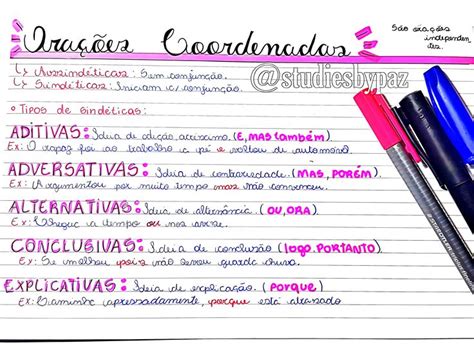 Orações Coordenadas
São orações
independen
tes.
↳ Assindéticas: Sem conjunção.
↳ Sindéticas: Iniciam c/ conjunção.
@studiesbypaz
• Tipos de sindéticas:
ADITIVAS: Ideia de adição, acréscimo. (E, MAS também)
Ex: O rapaz foi ao trabalho a pé e voltou de automóvel.
ADVERSATIVAS: Ideia de contrariedade. (MAS, PORÉM)
Ex: Argumentou por muito tempo mas não convenceu.
ALTERNATIVAS: Ideia de alternância. (OU, ORA)
Ex: Chegue a tempo ou me avise.
CONCLUSIVAS: Ideia de conclusão (logo, PORTANTO)
Ex: Se molhou pois não levou guarda chuva.
EXPLICATIVAS: Ideia de explicação. (Porque)
Ex: Caminhe apressadamente, porque está atrasado